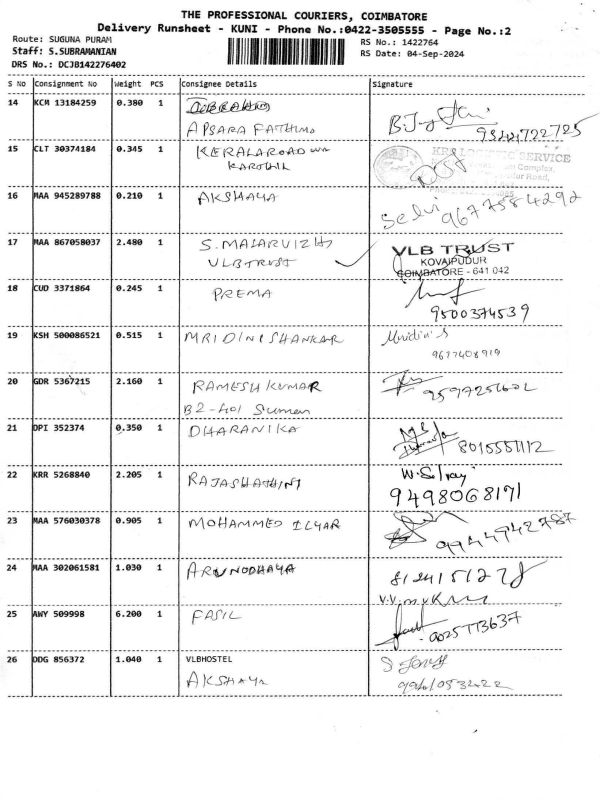 THE PROFESSIONAL COURIERS, COIMBATORE
Delivery Runsheet - KUNI - Phone No.:0422-3505555 - Page No.:2
Route: SUGUNA PURAM
RS No.: 1422764
Staff: S.SUBRAMANIAN
RS Date: 04-Sep-2024
DRS No.: DCJB142276402
S No Consignment No Weight PCS Consignee Details Signature
14 KCM 13184259 0.380 1
APSARA FATHIMA
15 CLT 30374184 0.345 1 KERALAROAD
KARTHIK
KRR LOGISTIC SERVICE
Complex,
Road,
16 MAA 945289788 0.210 1 AKSHAYA
Selvi 9677584292
17 MAA 867058037 2.480 1 S. MALARVIZHI
VLB TRUST
VLB TRUST
KOVAIPUDUR
COIMBATORE - 641 042
18 CUD 3371864 0.245 1 PREMA
9500374539
19 KSH 500086521 0.515 1 MRIDINISHANKAR Mridini S
9677408919
20 GDR 5367215 2.160 1 RAMESH KUMAR
B2-401 Suman
21 DPI 352374 0.350 1 DHARANIKA
8015551112
22 KRR 5268840 2.205 1 RAJASHATHINI
9498068171
23 MAA 576030378 0.905 1 MOHAMMED ILYAR
9944942787
24 MAA 302061581 1.030 1 ARUNODHAYA
25 AWY 509998 6.200 1 FASIL
26 DDG 856372 1.040 1 VLBHOSTEL
AKSHAYA